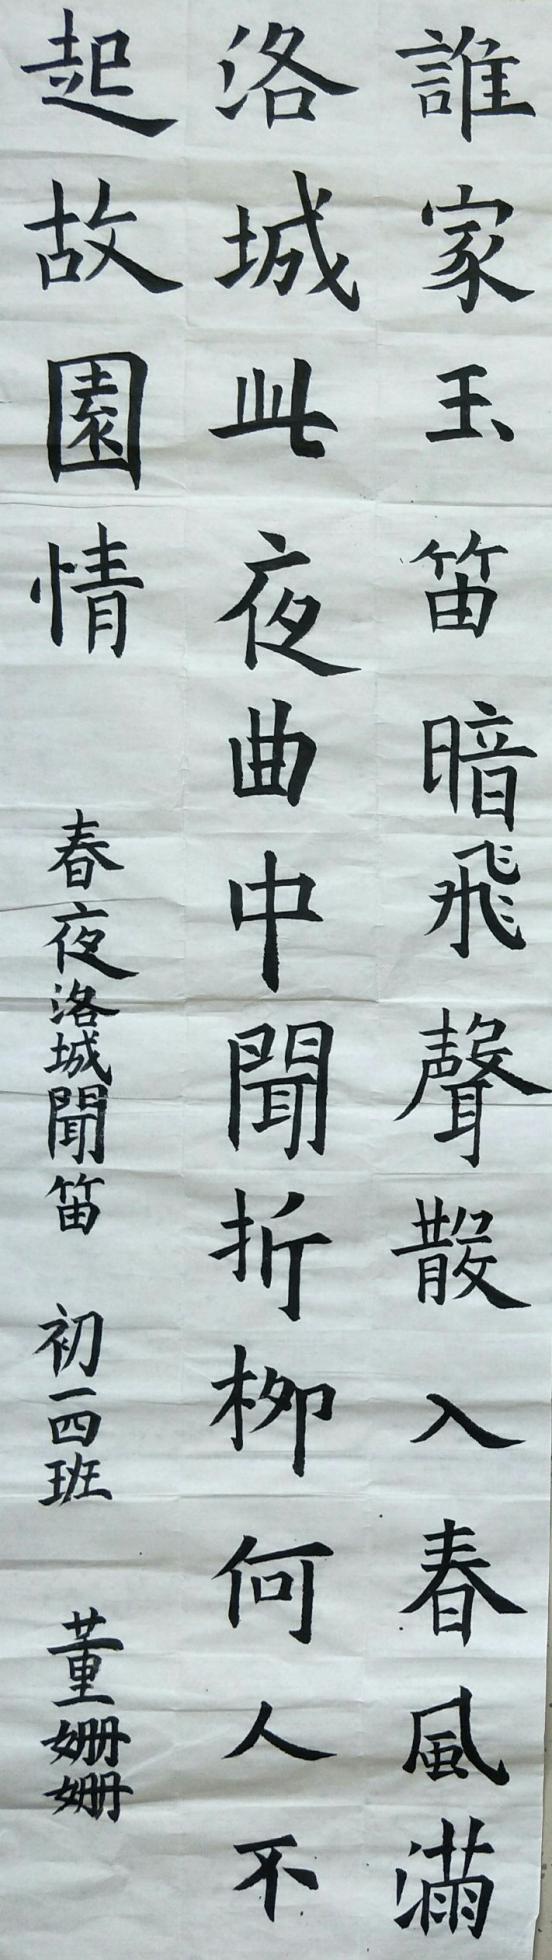 誰家玉笛暗飛聲散入春風滿
洛城此夜曲中聞折柳何人不
起故園情
春夜洛城聞笛 初一四班 董姍姍